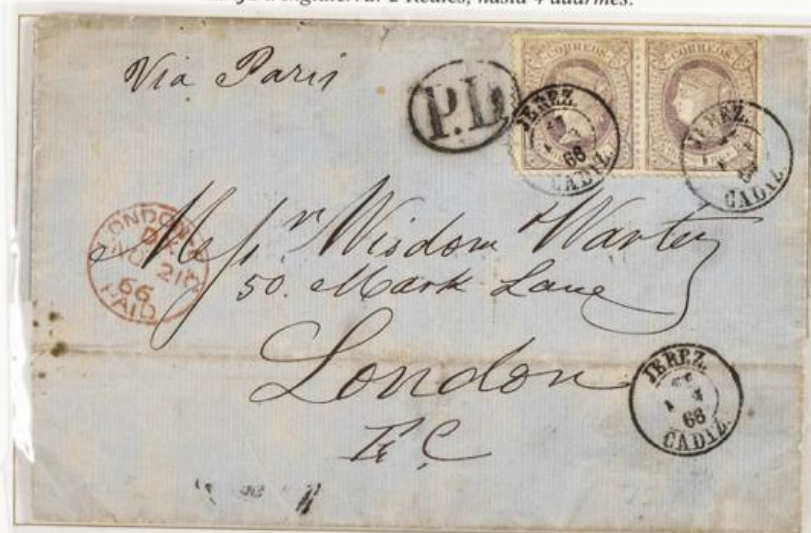 Inglaterra: 2 Reales, hasta 4 adarmes.
Via Paris
P.D
CORREOS
CORREOS
JEREZ.
66
CADIZ.
JEREZ.
CADIZ.
LONDON
66
PAID
Messrs Wisdom & Warter
50. Mark Lane
London
E C
JEREZ.
66
CADIZ.